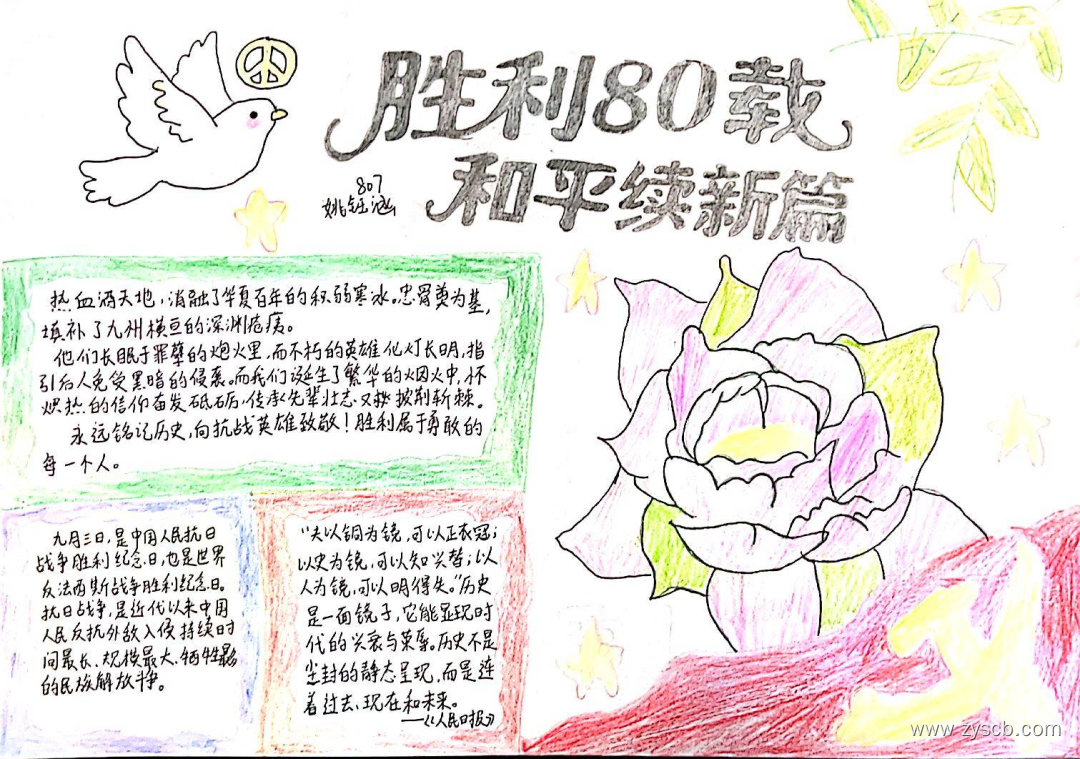 胜利80载
和平续新篇
807
姚钰涵
热血洒天地，消融了华夏百年的积弱寒冰。忠骨奠为基，
填补了九州横亘的深渊疮痍。
他们长眠于罪孽的炮火里，而不朽的英雄化灯长明，指
引后人免受黑暗的侵袭。而我们诞生了繁华的烟火中，怀
炽热的信仰奋发砥砺，传承先辈壮志又披荆斩棘。
永远铭记历史，向抗战英雄致敬！胜利属于勇敢的
每一个人。
九月三日，是中国人民抗日
战争胜利纪念日，也是世界
反法西斯战争胜利纪念日。
抗日战争，是近代以来中国
人民反抗外敌入侵持续时
间最长、规模最大、牺牲最多
的民族解放斗争。
“夫以铜为镜，可以正衣冠；
以史为镜，可以知兴替；以
人为镜，可以明得失。”历史
是一面镜子，它能显现时
代的兴衰与荣辱。历史不是
尘封的静态呈现，而是连
着过去、现在和未来。
——《人民日报》
www.zyscb.com